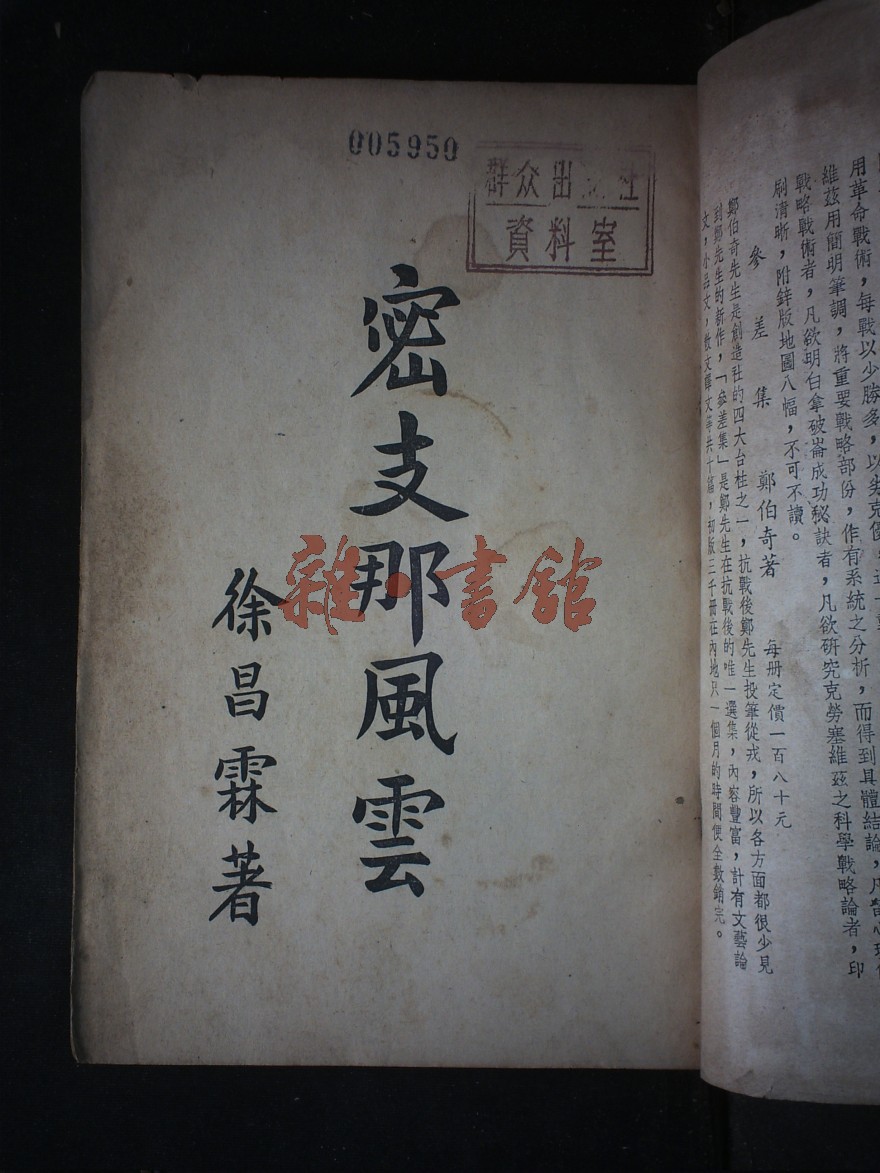 005950
群众出 社
資料室
密支那風雲
徐昌霖著
雜·書館
用革命戰術，每戰以少勝多，以尖克
維茲用簡明筆調，將重要戰略部份，作有系統之分析，而得到具體結論，凡
戰略戰術者，凡欲明白拿破崙成功秘訣者，凡欲研究克勞塞維茲之科學戰略論者，印
刷清晰，附鋅版地圖八幅，不可不讀。
參差集 鄭伯奇著 每册定價一百八十元
鄭伯奇先生是創造社的四大台柱之一，抗戰後鄭先生投筆從戎，所以各方面都很少見
到鄭先生的新作，「參差集」是鄭先生在抗戰後的唯一選集，內容豐富，計有文藝論
文，小品文，散文譯文等共十篇，初版三千册在內地只一個月的時間便全數銷完。